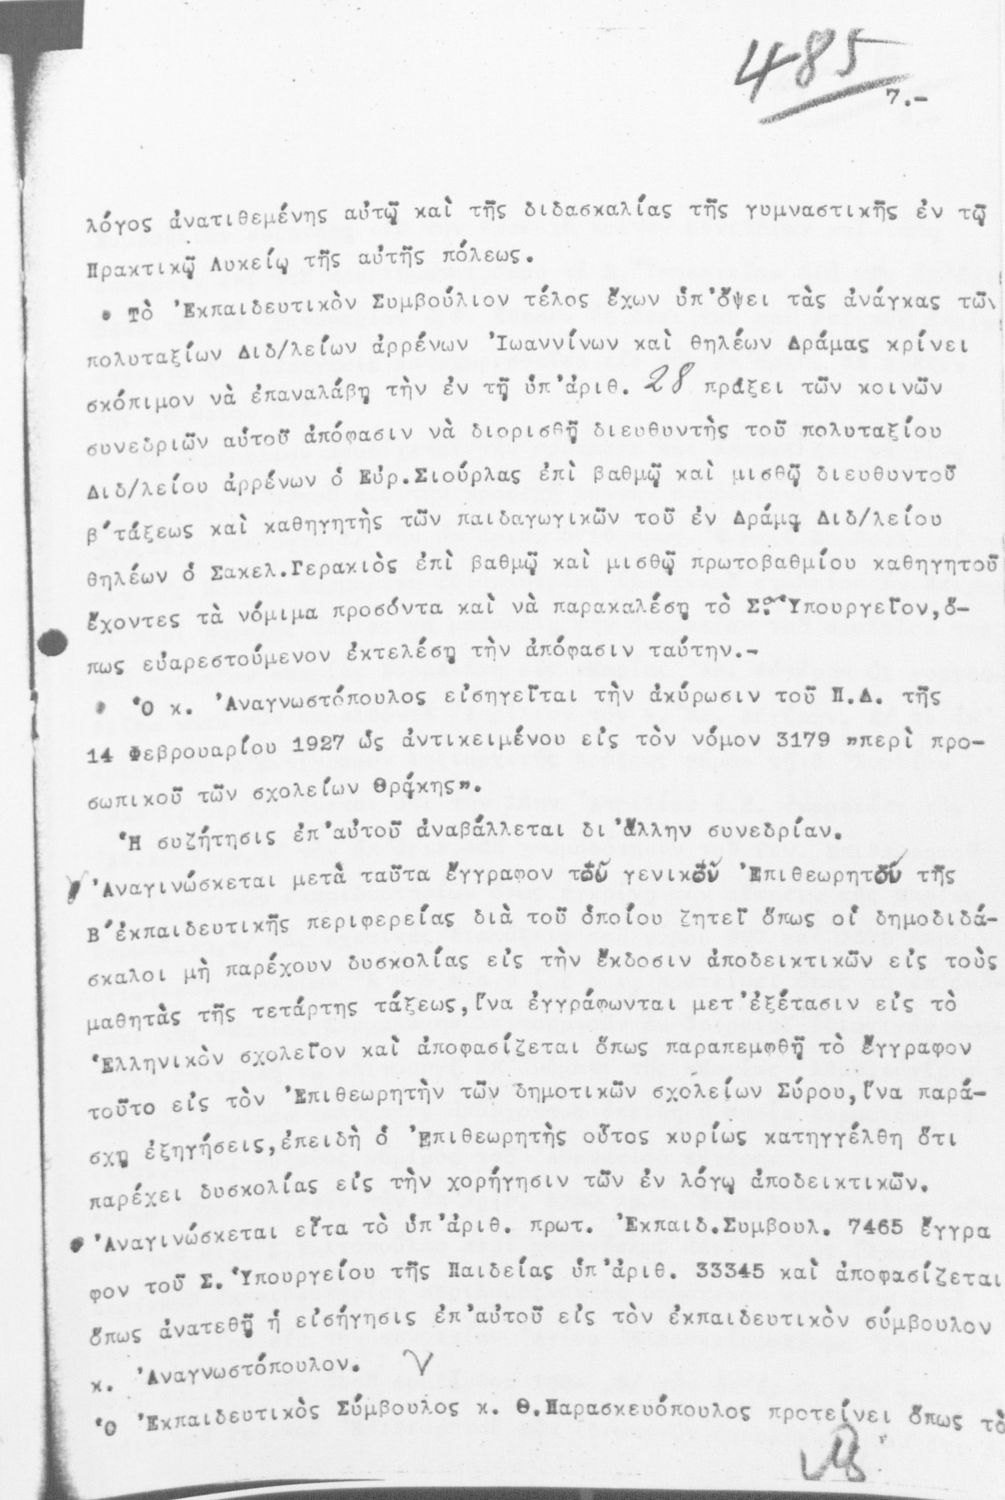 485
7.-
λόγος ἀνατιθεμένης αὐτῷ καὶ τῆς διδασκαλίας τῆς γυμναστικῆς ἐν τῷ
Πρακτικῷ Λυκείῳ τῆς αὐτῆς πόλεως.
Τὸ Ἐκπαιδευτικὸν Συμβούλιον τέλος ἔχων ὑπ'ὄψει τὰς ἀνάγκας τῶν
πολυταξίων Διδ/λείων ἀρρένων Ἰωαννίνων καὶ θηλέων Δράμας κρίνει
σκόπιμον νὰ ἐπαναλάβῃ τὴν ἐν τῇ ὑπ'ἀριθ. 28 πράξει τῶν κοινῶν
συνεδριῶν αὑτοῦ ἀπόφασιν νὰ διορισθῇ διευθυντὴς τοῦ πολυταξίου
Διδ/λείου ἀρρένων ὁ Εὐρ.Σιούρλας ἐπὶ βαθμῷ καὶ μισθῷ διευθυντοῦ
β΄τάξεως καὶ καθηγητὴς τῶν παιδαγωγικῶν τοῦ ἐν Δράμᾳ Διδ/λείου
θηλέων ὁ Σακελ.Γερακιὸς ἐπὶ βαθμῷ καὶ μισθῷ πρωτοβαθμίου καθηγητοῦ
ἔχοντες τὰ νόμιμα προσόντα καὶ νὰ παρακαλέσῃ τὸ Σ. Ὑπουργεῖον,ὅ-
πως εὐαρεστούμενον ἐκτελέσῃ τὴν ἀπόφασιν ταύτην.-
Ὁ κ. Ἀναγνωστόπουλος εἰσηγεῖται τὴν ἀκύρωσιν τοῦ Π.Δ. τῆς
14 Φεβρουαρίου 1927 ὡς ἀντικειμένου εἰς τὸν νόμον 3179 "περὶ προ-
σωπικοῦ τῶν σχολείων Θράκης".
Ἡ συζήτησις ἐπ'αὐτοῦ ἀναβάλλεται δι'ἄλλην συνεδρίαν.
Ἀναγινώσκεται μετὰ ταῦτα ἔγγραφον τοῦ γενικοῦ Ἐπιθεωρητοῦ τῆς
Β΄ἐκπαιδευτικῆς περιφερείας διὰ τοῦ ὁποίου ζητεῖ ὅπως οἱ δημοδιδά-
σκαλοι μὴ παρέχουν δυσκολίας εἰς τὴν ἔκδοσιν ἀποδεικτικῶν εἰς τοὺς
μαθητὰς τῆς τετάρτης τάξεως,ἵνα ἐγγράφωνται μετ'ἐξέτασιν εἰς τὸ
Ἑλληνικὸν σχολεῖον καὶ ἀποφασίζεται ὅπως παραπεμφθῇ τὸ ἔγγραφον
τοῦτο εἰς τὸν Ἐπιθεωρητὴν τῶν δημοτικῶν σχολείων Σύρου,ἵνα παρά-
σχῃ ἐξηγήσεις,ἐπειδὴ ὁ Ἐπιθεωρητὴς οὗτος κυρίως κατηγγέλθη ὅτι
παρέχει δυσκολίας εἰς τὴν χορήγησιν τῶν ἐν λόγῳ ἀποδεικτικῶν.
Ἀναγινώσκεται εἶτα τὸ ὑπ'ἀριθ. πρωτ. Ἐκπαιδ.Συμβουλ. 7465 ἔγγρα
φον τοῦ Σ. Ὑπουργείου τῆς Παιδείας ὑπ'ἀριθ. 33345 καὶ ἀποφασίζεται
ὅπως ἀνατεθῇ ἡ εἰσήγησις ἐπ'αὐτοῦ εἰς τὸν ἐκπαιδευτικὸν σύμβουλον
κ. Ἀναγνωστόπουλον.
Ὁ Ἐκπαιδευτικὸς Σύμβουλος κ. Θ.Παρασκευόπουλος προτείνει ὅπως τὸ